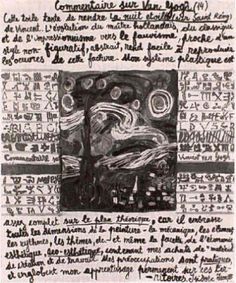 Commentaire sur Van Gogh (14)
Cette toile tente de rendre la nuit étoilée (de Saint Rémy)
de Vincent. L'évolution du maître hollandais, du classique
et de l'impressionnisme vers le fauvisme, proche d'un
style non figuratif, abstrait, rend facile à reproduire
les œuvres de cette facture. Son système plastique est
Commentaire
Vincent Van Gogh
assez complet sur le plan théorique, car il embrasse
toutes les dimensions de la peinture - la mécanique, les éléments
les rythmes, les thèmes, de - et même la facette de l'élément
esthétique, géo-esthétique, contenant mes
de création et de travail. Mes préoccupations sont pratiques
et englobent mon apprentissage permanent sur ces